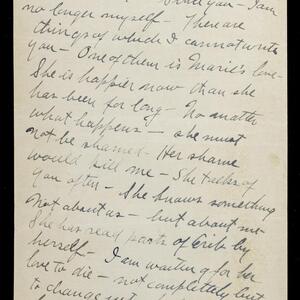 you - I am
no longer myself - There are
things of which I cannot write
you - One of them is Marie's love -
She is happier now than she
has been for long - No matter
what happens - she must
not be shamed - Her shame
would kill me - She talks of
you often - She knows something
Not about us - but about me
She has read parts of by
herself - I am waiting for her
love to die - not completely, but
to change into